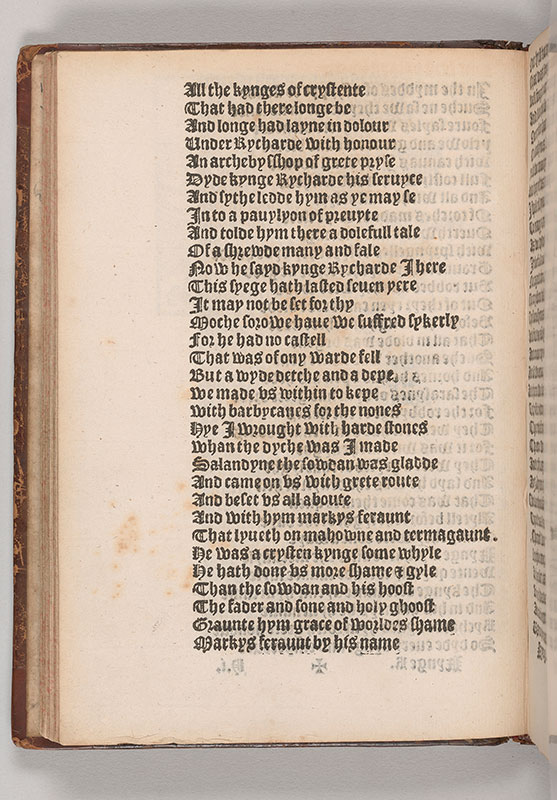 All the kynges of crystente
That had there longe be
And longe had layne in dolour
Under Rycharde with honour
An archebysshop of grete pryse
Dyde kynge Rycharde his seruyce
And sythe ledde hym as ye may se
In to a pauylyon of preuyte
And tolde hym there a dolefull tale
Of a shrewde many and fale
Now he sayd kynge Rycharde I here
This syege hath lasted seuen yere
It may not be let for thy
Moche sorowe haue we suffred sykerly
For he had no castell
That was of ony warde fell
But a wyde detche and a depe
we made vs within to kepe
with barbycanes for the nones
Hye I wrought with harde stones
whan the dyche was I made
Salandyne the sowdan was gladde
And came on vs with grete route
And beset vs all aboute
And with hym markys feraunt
That lyueth on mahowne and termagaunt.
He was a crysten kynge some whyle
He hath done vs more shame & gyle
Than the sowdan and his hoost
The fader and sone and holy ghoost
Graunte hym grace of worldes shame
Markys feraunt by his name